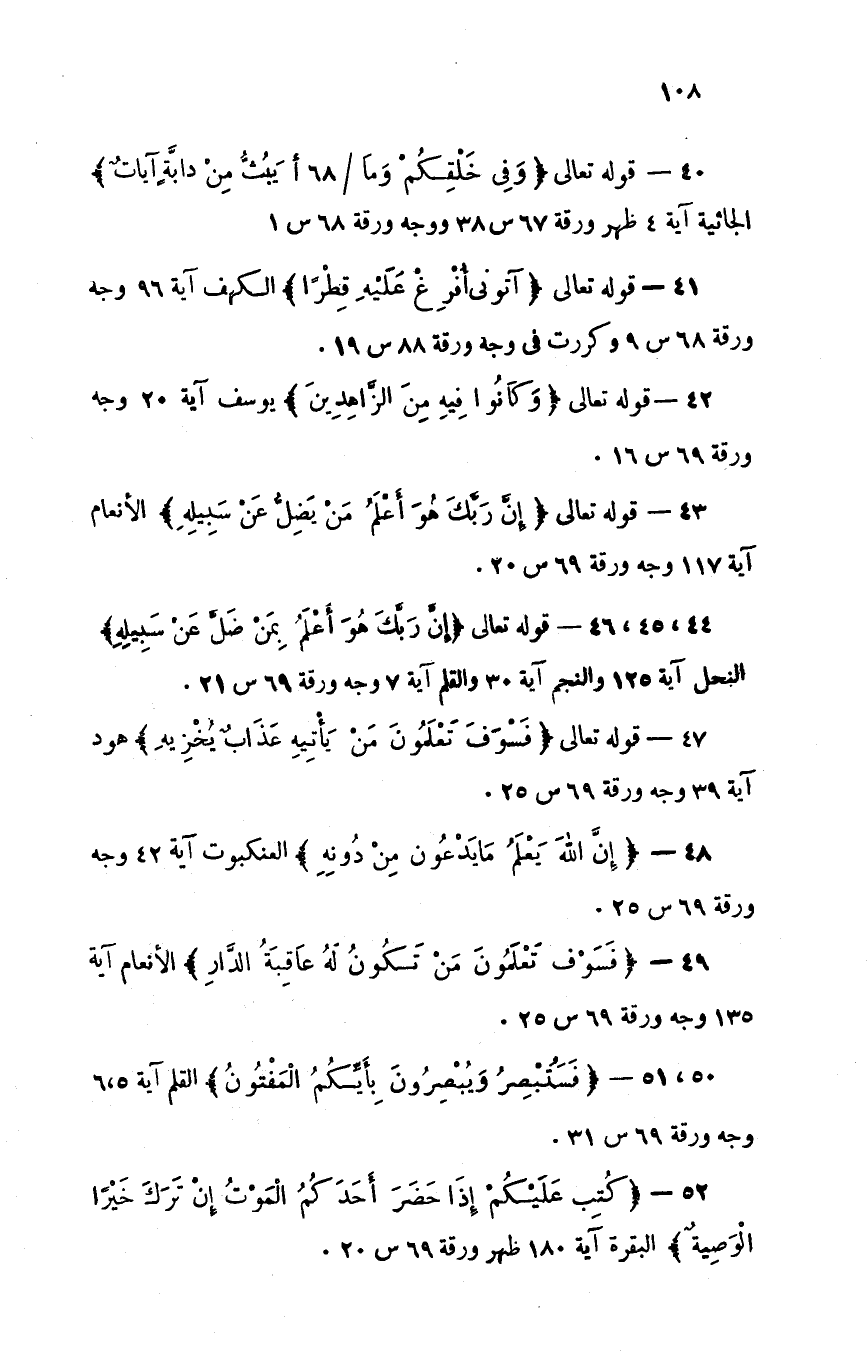 ١٠٨
٤٠ — قوله تعالى ﴿ وَفِى خَلْقِكُمْ وَمَا / ٦٨ أ يَبُثُّ مِنْ دابَّةٍ آياتٌ ﴾
الجاثية آية ٤ ظهر ورقة ٦٧ س ٣٨ ووجه ورقة ٦٨ س ١
٤١ — قوله تعالى ﴿ آتونى أُفْرِغْ عَلَيْهِ قِطْرًا ﴾ الكهف آية ٩٦ وجه
ورقة ٦٨ س ٩ وكررت فى وجه ورقة ٨٨ س ١٩ .
٤٢ — قوله تعالى ﴿ وَكَانُوا فِيهِ مِنَ الزَّاهِدِينَ ﴾ يوسف آية ٢٠ وجه
ورقة ٦٩ س ١٦ .
٤٣ — قوله تعالى ﴿ إِنَّ رَبَّكَ هُوَ أَعْلَمُ مَنْ يَضِلُّ عَنْ سَبِيلِهِ ﴾ الأنعام
آية ١١٧ وجه ورقة ٦٩ س ٢٠ .
٤٤ ، ٤٥ ، ٤٦ — قوله تعالى ﴿إِنَّ رَبَّكَ هُوَ أَعْلَمُ بِمَنْ ضَلَّ عَنْ سَبِيلِهِ﴾
النحل آية ١٢٥ والنجم آية ٣٠ والقلم آية ٧ وجه ورقة ٦٩ س ٢١ .
٤٧ — قوله تعالى ﴿ فَسَوْفَ تَعْلَمُونَ مَنْ يَأْتِيهِ عَذَابٌ يُخْزِيهِ ﴾ هود
آية ٣٩ وجه ورقة ٦٩ س ٢٥ .
٤٨ — ﴿ إِنَّ اللهَ يَعْلَمُ مَايَدْعُون مِنْ دُونِهِ ﴾ العنكبوت آية ٤٢ وجه
ورقة ٦٩ س ٢٥ .
٤٩ — ﴿ فَسَوْف تَعْلَمُونَ مَنْ تَكُونُ لَهُ عاقِبَةُ الدَّارِ ﴾ الأنعام آية
١٣٥ وجه ورقة ٦٩ س ٢٥ .
٥٠ ، ٥١ — ﴿ فَسَتُبْصِرُ وَيُبْصِرُونَ بِأَيِّكُمُ الْمَفْتُونُ ﴾ القلم آية ٥،٦
وجه ورقة ٦٩ س ٣١ .
٥٢ — ﴿ كُتِب عَلَيْكُمْ إِذَا حَضَرَ أَحَدَكُمُ الْمَوْتُ إِنْ تَرَكَ خَيْرًا
الْوَصِيةُ ﴾ البقرة آية ١٨٠ ظهر ورقة ٦٩ س ٢٠ .